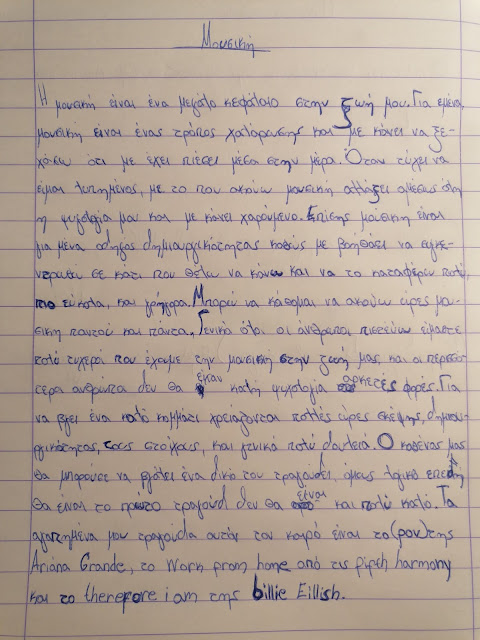 Μουσική
Η μουσική είναι ένα μεγάλο κεφάλαιο στην ζωή μου. Για εμένα
μουσική είναι ένας τρόπος χαλάρωσης και με κάνει να ξε-
χάσω ότι με έχει πιέσει μέσα στην μέρα. Όταν τύχει να
είμαι λυπημένος, με το που ακούω μουσική αλλάζει αμέσως όλη
η ψυχολογία μου και με κάνει χαρούμενο. Επίσης μουσική είναι
για μένα οδηγός δημιουργικότητας καθώς με βοηθάει να συγκε-
ντρωθώ σε κάτι που θέλω να κάνω και να το καταφέρω πολύ,
πιο εύκολα, και γρήγορα. Μπορώ να κάθομαι να ακούω ώρες μου-
σική παντού και πάντα. Γενικά όλοι οι άνθρωποι πιστεύω είμαστε
πολύ τυχεροί που έχουμε την μουσική στην ζωή μας, και οι περισσό-
τερα ανθρώποι δεν θα έκαν καλή ψυχολογία αρκετές φορές. Για
να βγει ένα καλό κομμάτι χρειάζονται πολλές ώρες σκέψης, δημιου-
ργικότητας, τους στίχους, και γενικά πολύ δουλειά. Ο καθένας μας
θα μπορούσε να βγάλει ένα δικό του τραγούδι, όμως λογικό επειδή
θα είναι το πρώτο τραγούδι δεν θα είναι και πολύ καλό. Τα
αγαπημένα μου τραγούδια αυτόν τον καιρό είναι το (pov) της
Ariana Grande, το Work from home από τις fifth harmony
και το therefore i am της billie Eillish.